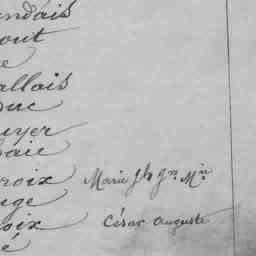 ndais
out
e
allois
uc
uyer
baie
roix Marie Jh Jn Min
uge
oix César Auguste
é